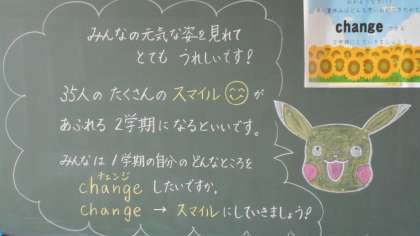 みんなの元気な姿を見れて
とても うれしいです！
35人の たくさんの スマイル が
あふれる 2学期になるといいです。
みんなは 1学期の自分の どんなところを
チェンジ
change したいですか。
change → スマイルにしていきましょう！
change